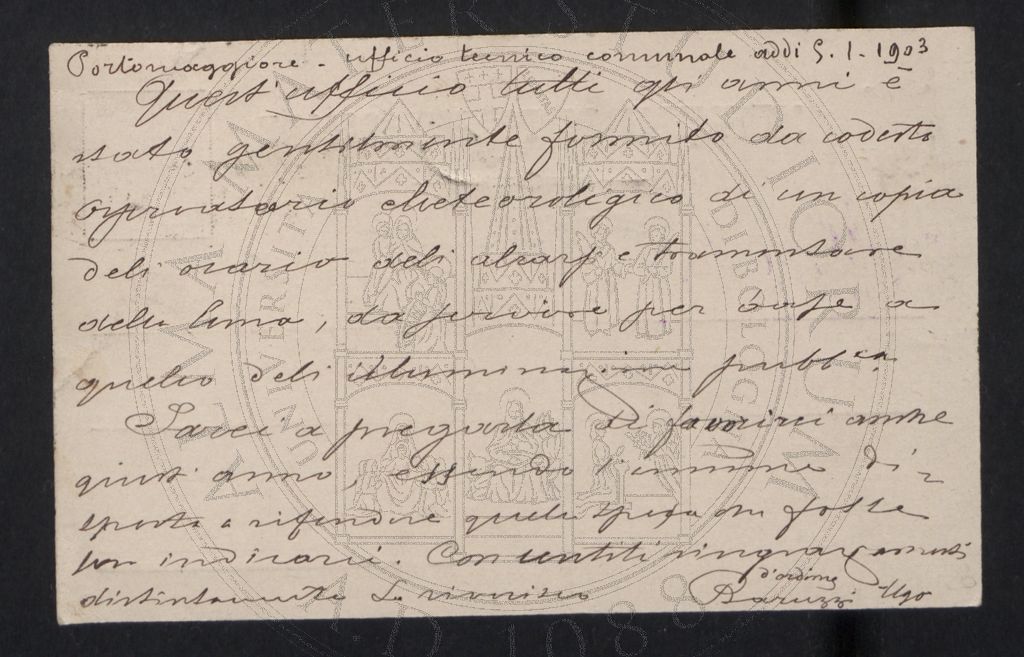 Portomaggiore - ufficio tecnico comunale addi 5.1.1903
Quest'ufficio tutti gli anni è
stato gentilmente fornito da codesto
osservatorio meteorologico di un copia
dell orario dell alzarsi e tramontare
della luna, da servire per base a
quello dell illuminazione pubb.ca.
Sarei a pregarla di favorirci anche
quest anno, essendo l'
a rifondere quella spesa che fosse
per indicarci. Con sentiti ringraziamenti
distintamente La riverisco
d'ordine
Baruzzi Ugo
ALMA MATER STUDIORUM
UNIVERSITÀ DI BOLOGNA
A.D. 1088